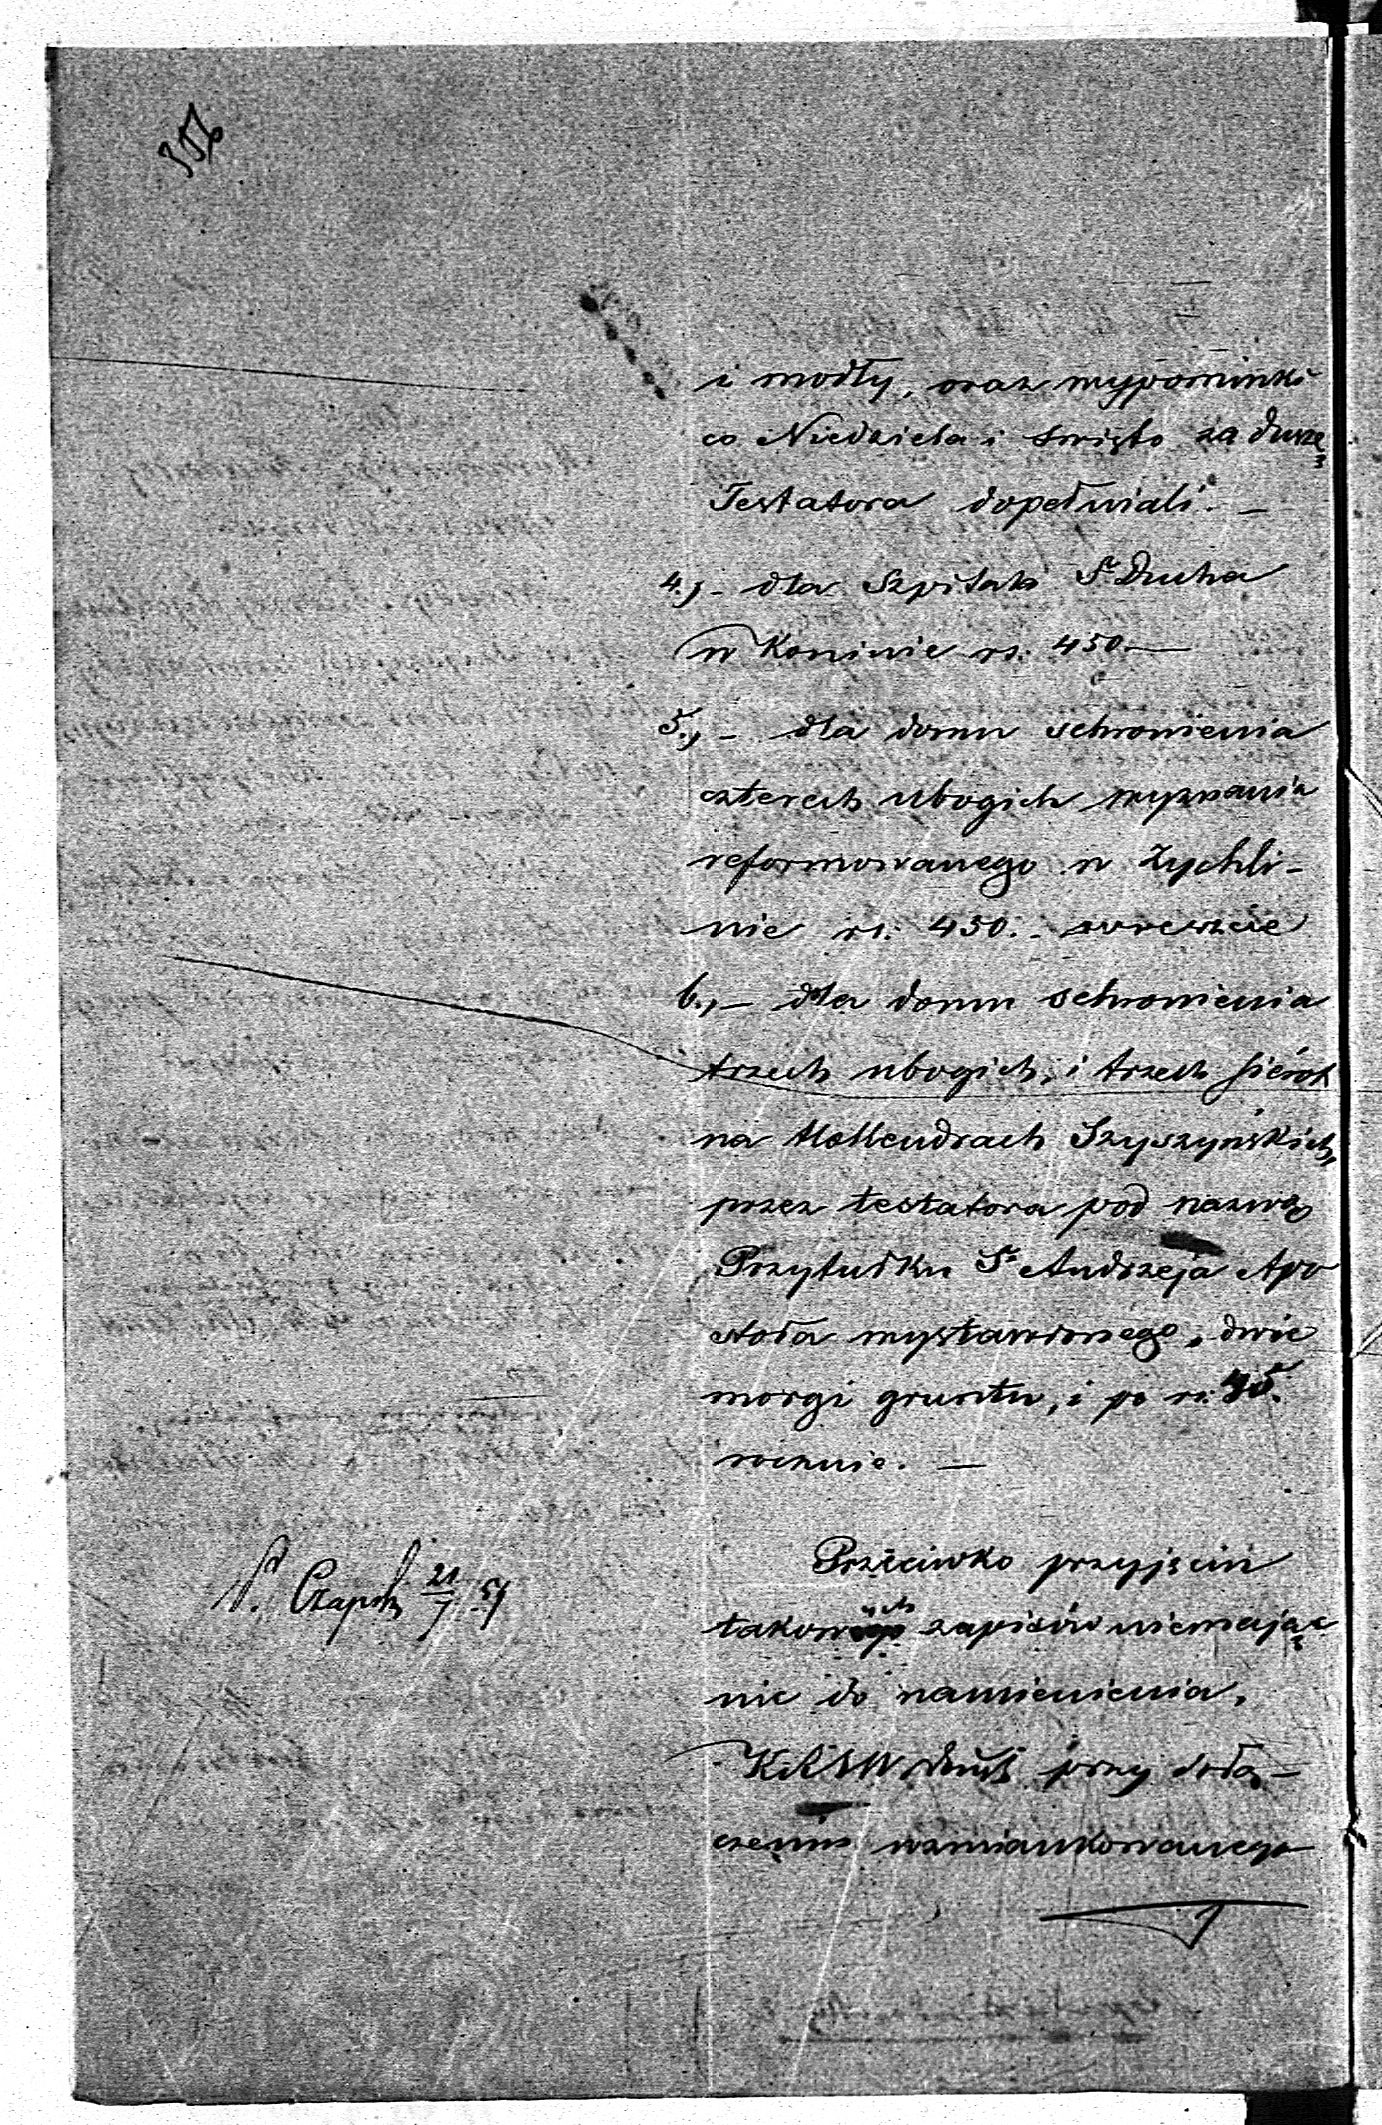 i modły, oraz wypominki
co Niedziela i święto za duszę
Testatora dopełniali. —
4.) - dla Szpitala Sº Ducha
w Koninie rs. 450 —
5.) - dla domu schronienia
czterech ubogich wyznania
reformowanego w Żychli-
nie rs. 450. - wreszcie
6.) — dla domu schronienia
trzech ubogich, i trzech sierót
na Hollendrach Szyszyńskich,
przez testatora pod nazwą
Przytułku Sº Andrzeja Apo
stoła wystawionego, dwie
morgi gruntu, i po rs. 45.
rocznie. —
Przeciwko przyjęciu
takowych zapisów niemając
nic do namienienia,
przy dołą-
czeniu wzmiankowanego
Czapski 21/7 51